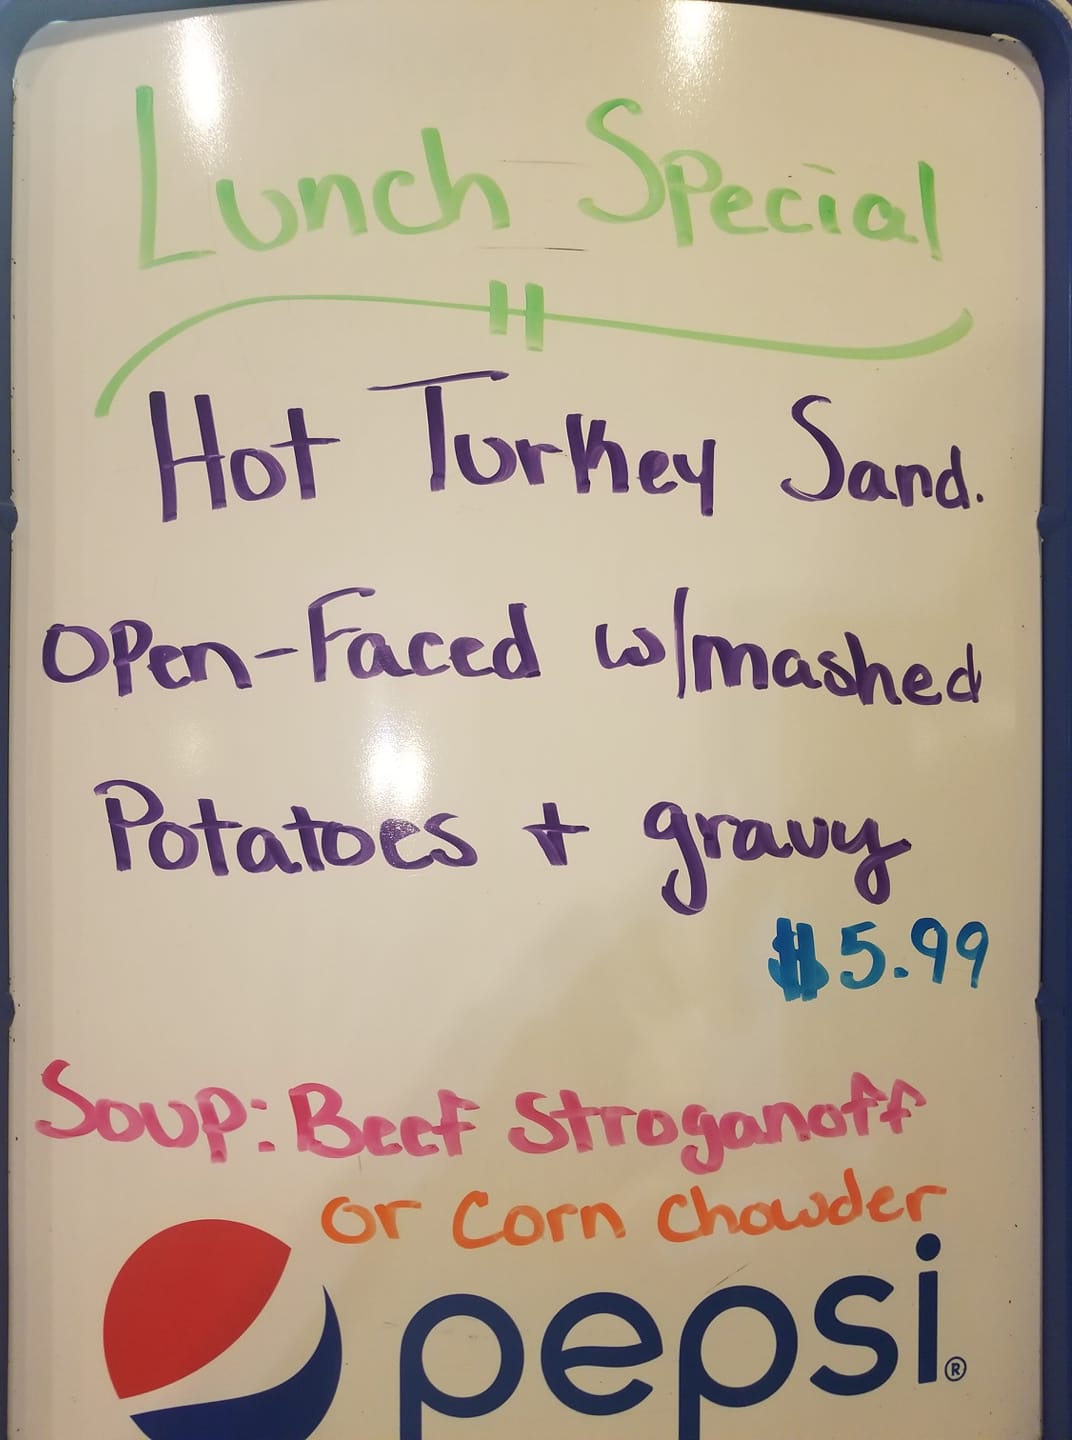 Lunch Special
Hot Turkey Sand.
Open-Faced w/mashed
Potatoes + gravy
$5.99
Soup: Beef Stroganoff
or Corn Chowder
pepsi®